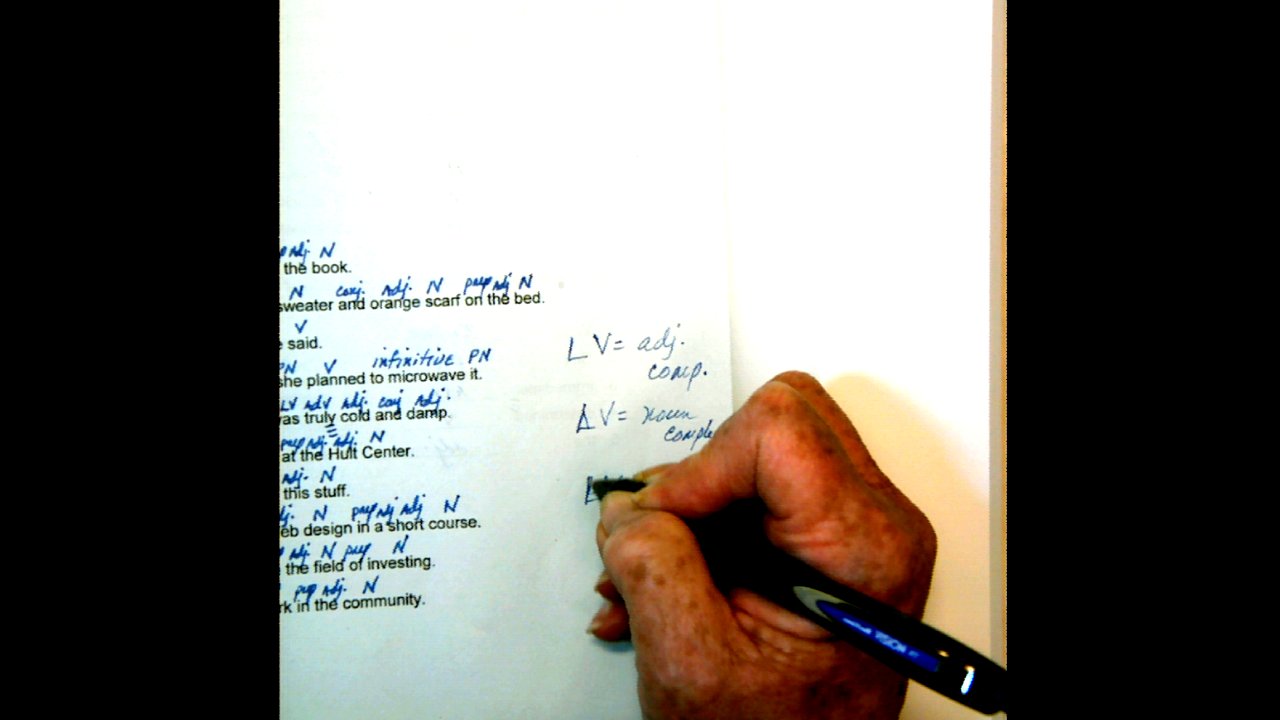 adj. N
the book.
N conj. adj. N prep adj N
sweater and orange scarf on the bed.
V
said.
PN V infinitive PN
she planned to microwave it.
LV adv adj. conj adj.
was truly cold and damp.
prep adj. adj. N
at the Hult Center.
adj. N
this stuff.
N prep adj adj N
eb design in a short course.
adj. N prep N
the field of investing.
prep adj. N
rk in the community.
LV = adj.
comp.
V = noun
comple